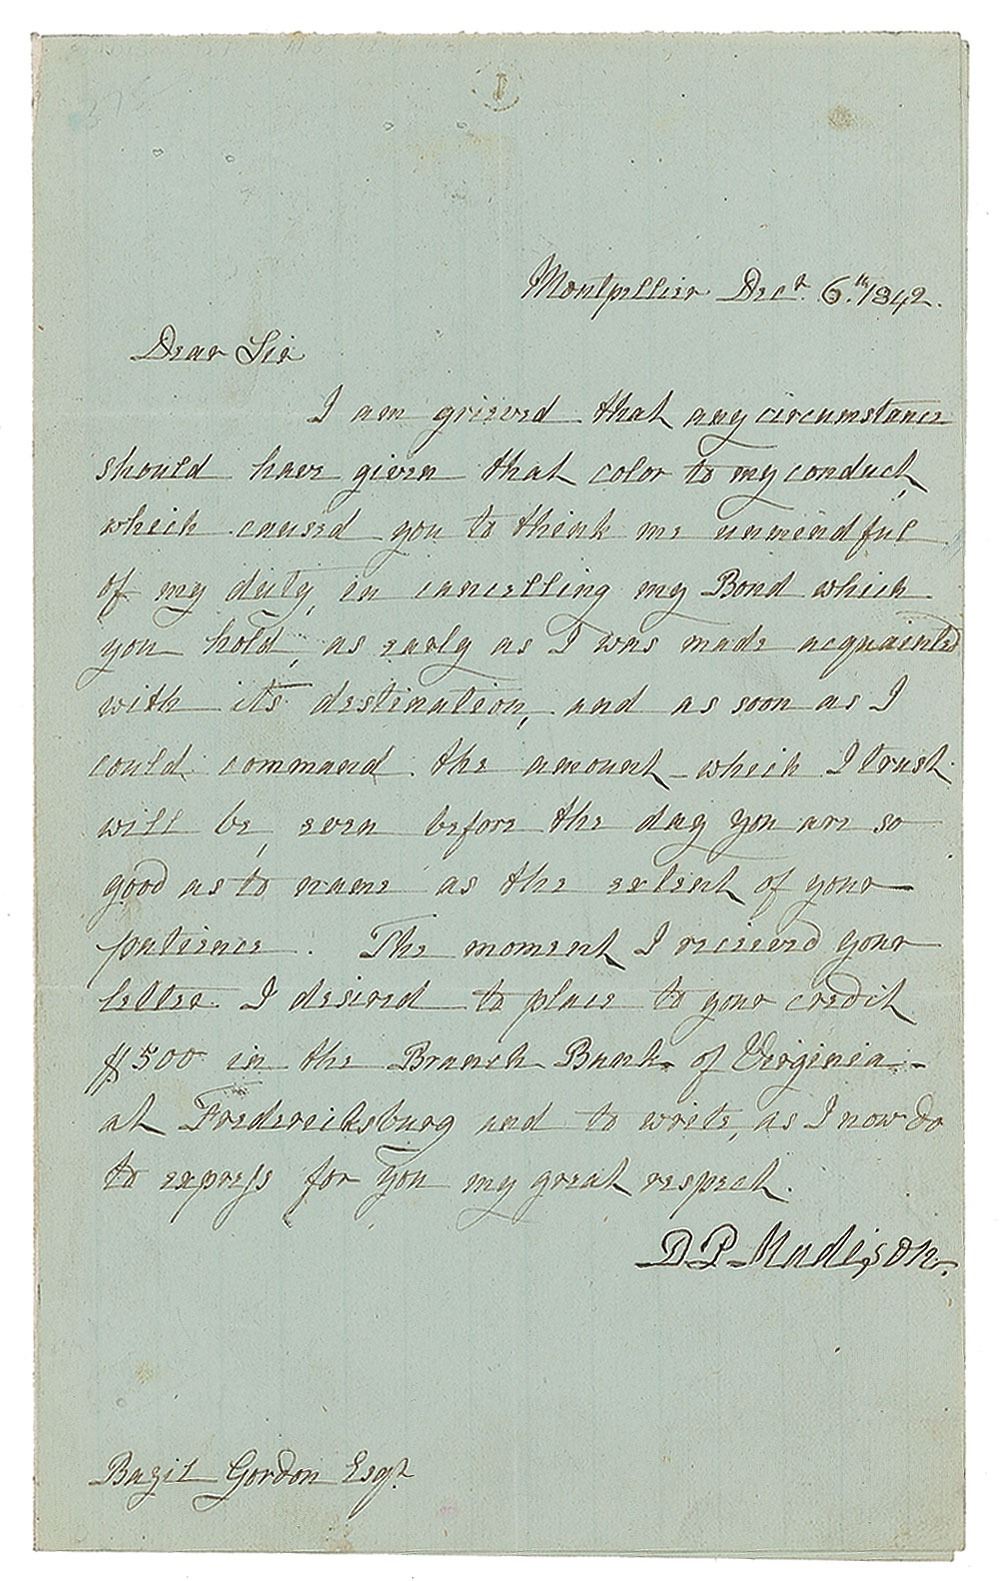 Montpellier Decr. 6.th 1842.
Dear Sir
I am grieved that any circumstance
should have given that color to my conduct,
which caused you to think me unmindful
of my duty, in cancelling my Bond which
you hold, as early as I was made acquainted
with its destination, and as soon as I
could command the amount - which I trust
will be, even before the day you are so
good as to name as the extent of your
patience. The moment I recieved your
letter I desired to place to your credit
$500 in the Branch Bank of Virginia -
at Fredericksburg and to write, as I now do
to express for you my great respect.
D P Madison.
Bazil Gordon Esqr.